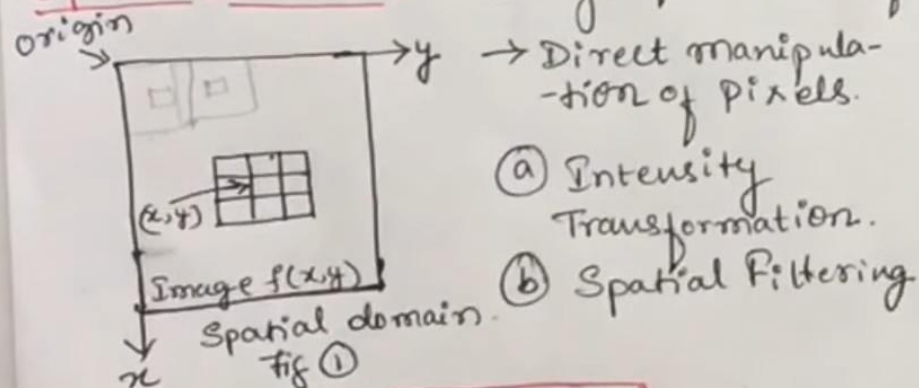 origin
y
(x,y)
Image f(x,y)
x
Spatial domain.
fig ①
→ Direct manipula-
-tion of pixels.
ⓐ Intensity
Transformation.
ⓑ Spatial Filtering